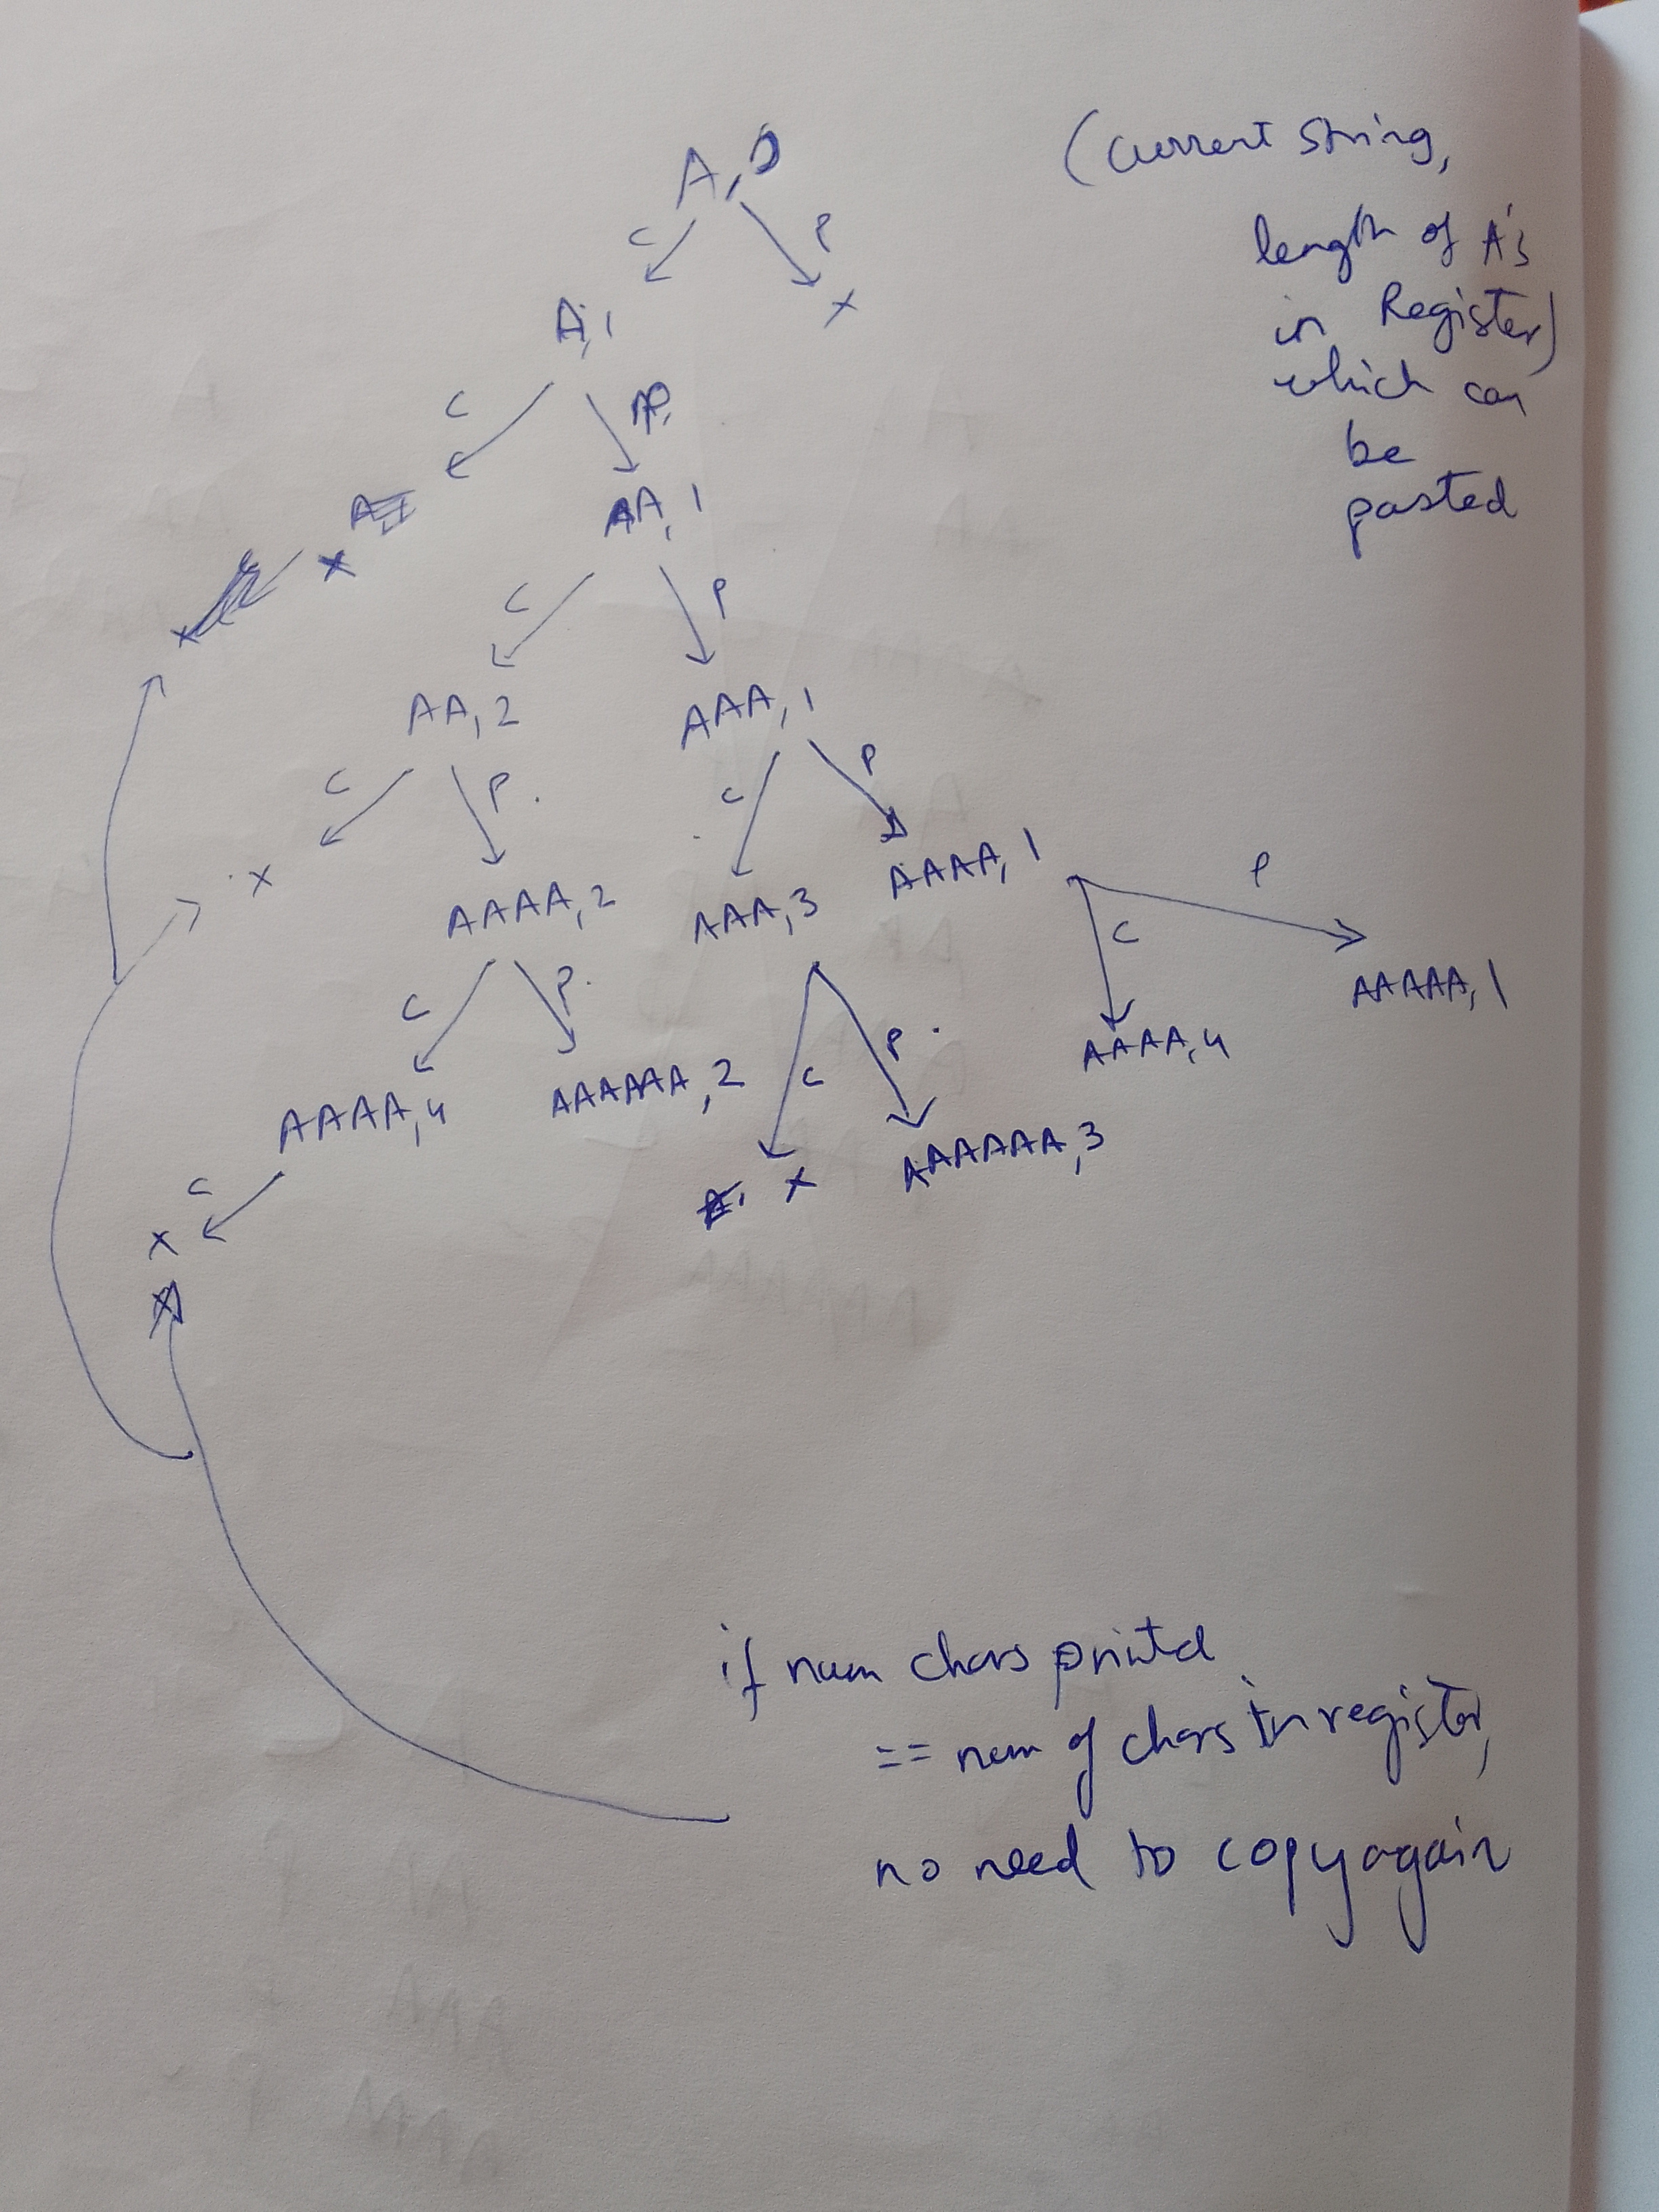 A,0
(Current string,
length of A's
in Register)
which can
be
pasted
C P
A,1 x
C P
x AA,1
x
C P
AA,2 AAA,1
C P C P
x AAAA,2 AAA,3 AAAA,1
C P C P C P
AAAA,4 AAAAAA,2 x AAAAAA,3 AAAA,4 AAAAA,1
C
x
if num chars printed
== num of chars in register,
no need to copy again